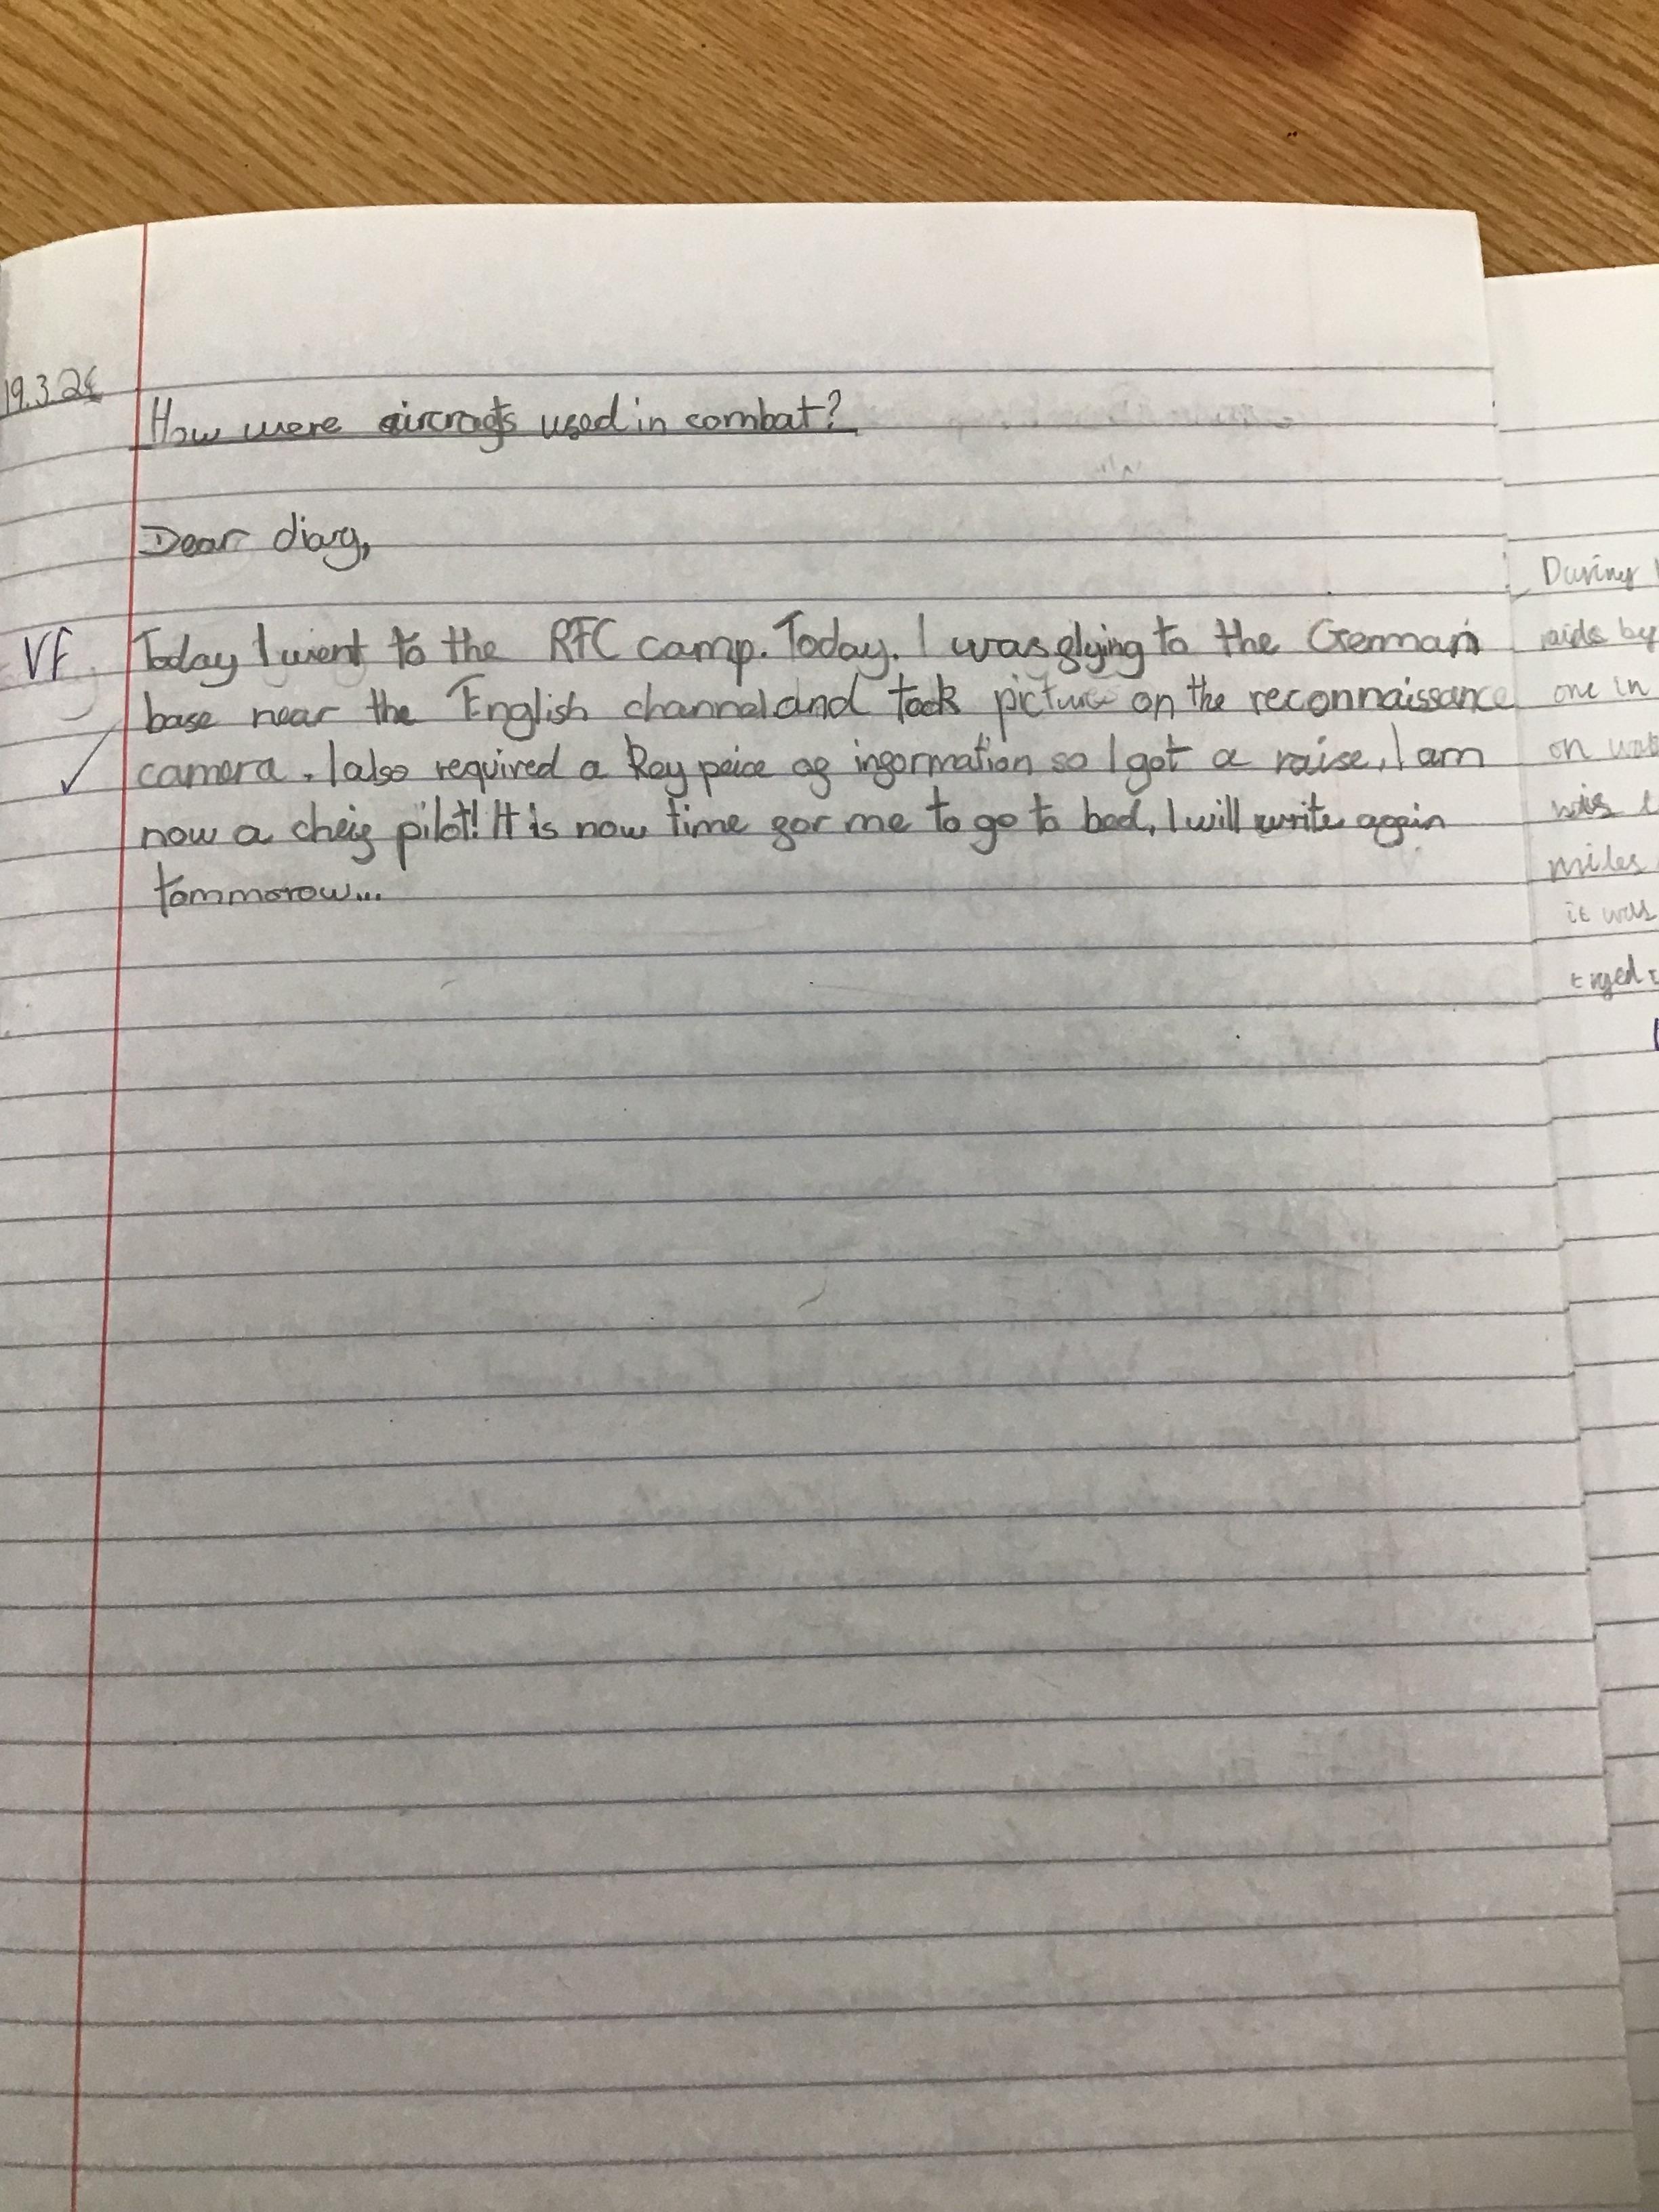 19.3.24
How were aircrafts used in combat?
Dear diary,
VF Today I went to the RFC camp. Today. I was flying to the German
base near the English channel and took picture on the reconnaissance
camera. I also required a key peice of information so I got a raise, I am
now a cheif pilot! It is now time for me to go to bed, I will write again
tommorow...
During
aids by
one in
on
miles
it was